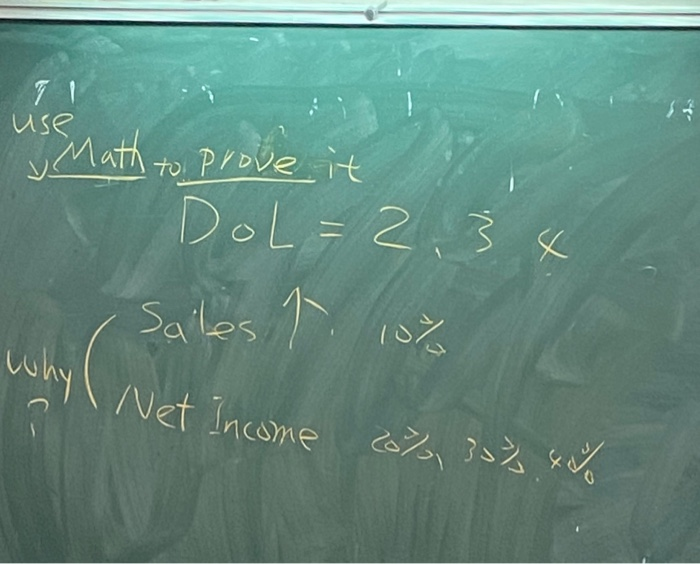 use
Math to prove it
DoL = 2, 3 4
Sales ↑. 10%
Why (
?
Net Income 20%, 30%, 40%